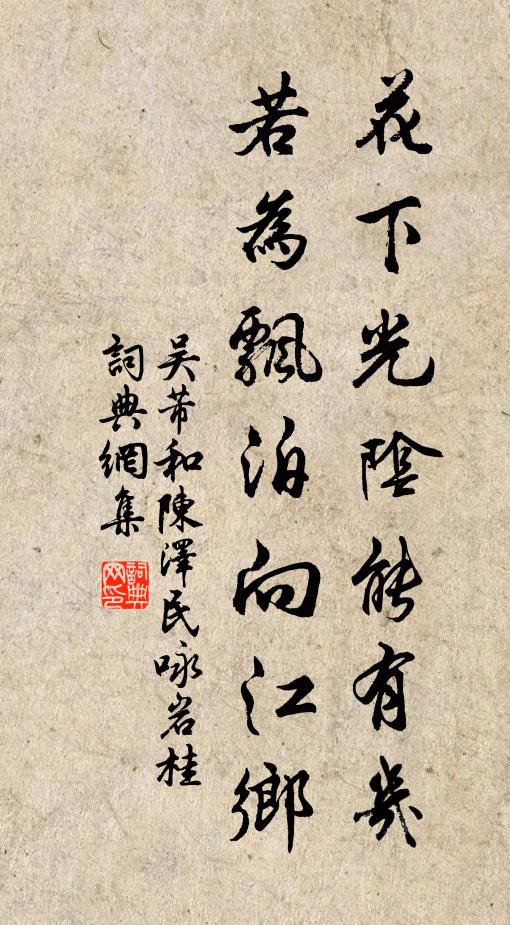 花下光陰能有幾
若為飄泊向江鄉
吳芾和陳澤民咏岩桂
詞典網集
詞典网印